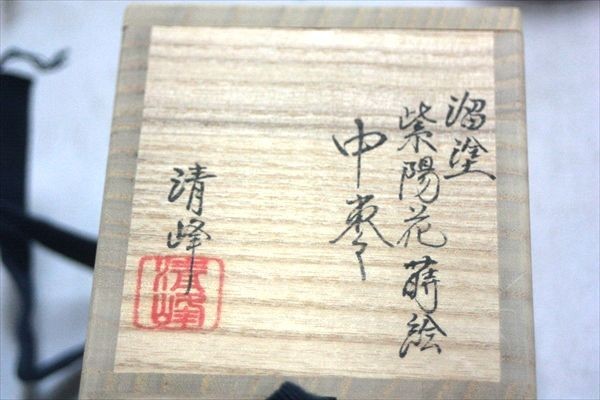 溜塗
紫陽花蒔絵
中棗
清峰
清峰